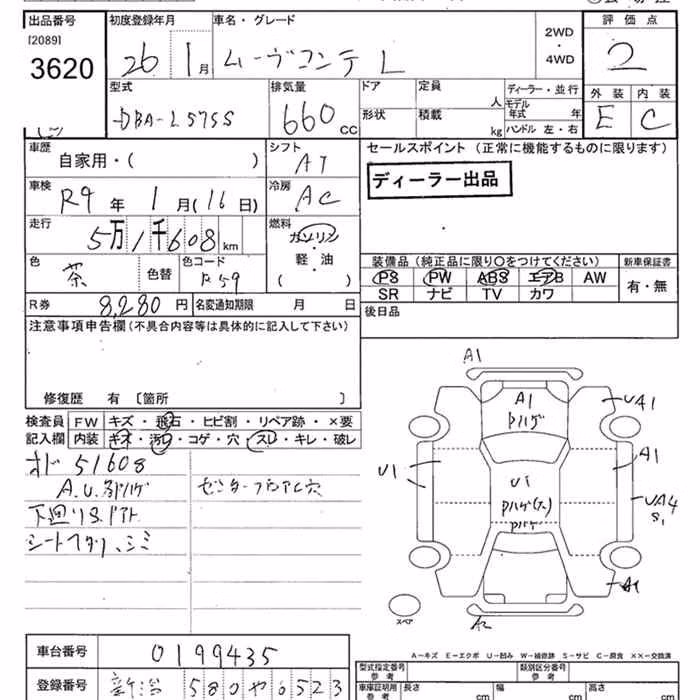 出品番号 初度登録年月 車名・グレード 評価点
[2089]
3620 26 1月 ムーヴコンテ L 2WD・4WD 2
型式 排気量 ドア 定員 人 ディーラー・並行 外装 内装
DBA-L575S 660cc 形状 積載 kg モデル年式 年 ハンドル 左・右 E C
車歴 自家用・( ) シフト AT セールスポイント (正常に機能するものに限ります)
ディーラー出品
車検 R9年 1月(16日) 冷房 AC
走行 5万1千608km 燃料 ガソリン・軽油 ( )
色 茶 色替 色コード R59
装備品 (純正品に限り○をつけてください) 新車保証書
PS PW ABS エアB AW 有・無
SR ナビ TV カワ
R券 8,280円 名変通知期限 月 日 後日品
注意事項申告欄 (不具合内容等は具体的に記入して下さい)
修復歴 有 [箇所 ]
検査員記入欄 FW キズ・飛石・ヒビ割・リペア跡・×要
内装 キズ・汚レ・コゲ・穴・スレ・キレ・破レ
オド 51608
A.U.多 Pハゲ センターフロアレ穴
下回りS.
シート、シミ
A1
A1
Pハゲ
UA1
A1
U1
U1
UA4
S1
Pハゲ
A1
スペア
A=キズ E=エクボ U=凹み W=補修跡 S=サビ C=腐食 ××=交換済
車台番号 0199435
登録番号 新潟 580 や 6523
型式指定番号 参考 類別区分番号 参考
車庫証明用 参考 長さ cm 幅 cm 高さ cm